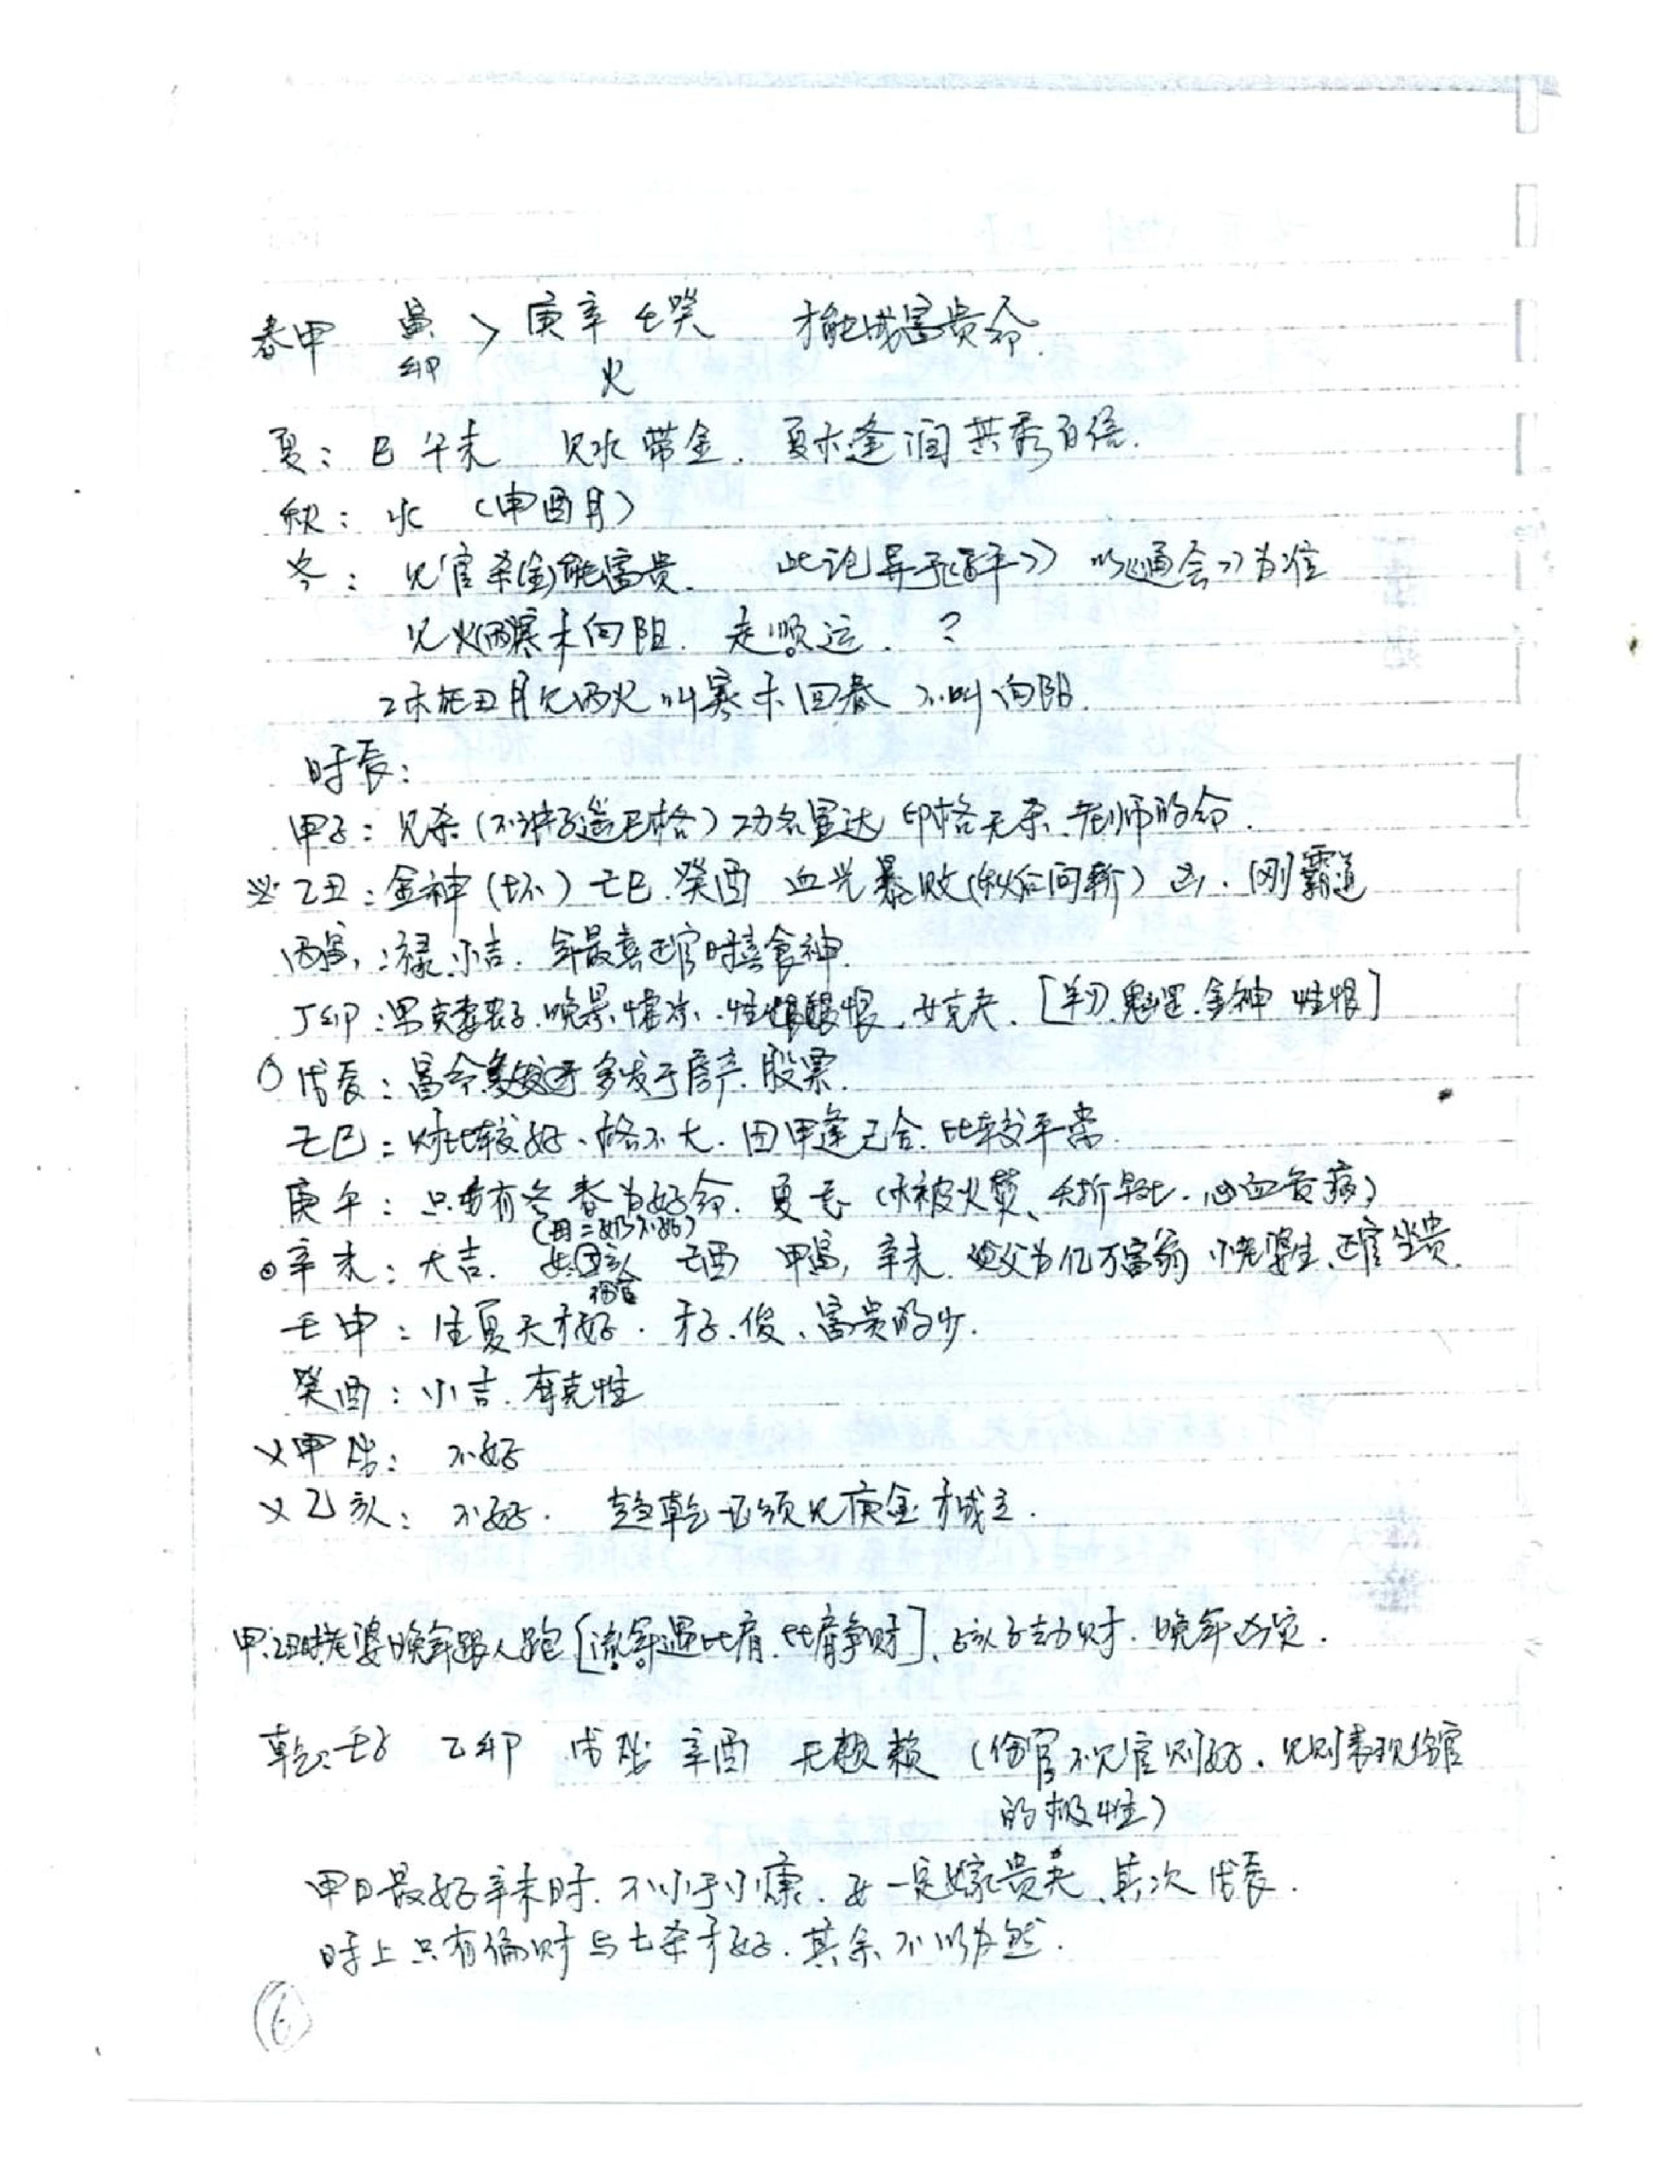 春甲 寅卯 > 庚辛 壬癸 火 才能成富贵命.
夏: 巳午未 见水带金. 夏木逢润其秀百倍.
秋: 水 (申酉月)
冬: 见官杀(金)能富贵. 此论异于《子平》 以《通会》为准
见火(丙)寒木向阳. 走顺运. ?
乙木在丑月见丙火叫寒木回春 不叫向阳.
时辰:
甲子: 见杀(不冲子遥巳格)功名显达 印格无杀、老师的命.
乙丑: 金神(坏) 己巳. 癸酉 血光暴败(秋后问斩) 凶. 刚霸道
丙寅: 禄. 小吉. 年最喜正官时喜食神.
丁卯: 男克妻. 晚景凄凉. 女克夫. [羊刃. 魁罡. 金神 性恨]
戊辰: 富命 多发于房产. 股票.
己巳: 比较好、格不大. 因甲逢己合. 比较平常.
庚午: 只有冬春为好命. 夏忌 (木被火焚、夭折. 心血管病)
(丑二 不好)
辛未: 大吉. 己酉 甲寅, 辛未. 父为亿万富翁 正官坐贵.
壬申: 生夏天才好. 才子. 俊、富贵的少.
癸酉: 小吉. 有克性
×甲戌: 不好
×乙亥: 不好. 趋乾 必须见庚金才成立.
甲:乙丑时老婆晚年跟人跑[流年遇比肩. 比肩争财]. 亥子劫财. 晚年凶灾.
乾: 壬子 乙卯 戊戌 辛酉 无赖 (伤官不见官则好. 见则表现伤官
的极性)
甲日最好辛未时. 不小于小康. 女一定嫁贵夫、其次戊辰.
时上只有偏财与七杀才好. 其余不以为然.
⑥